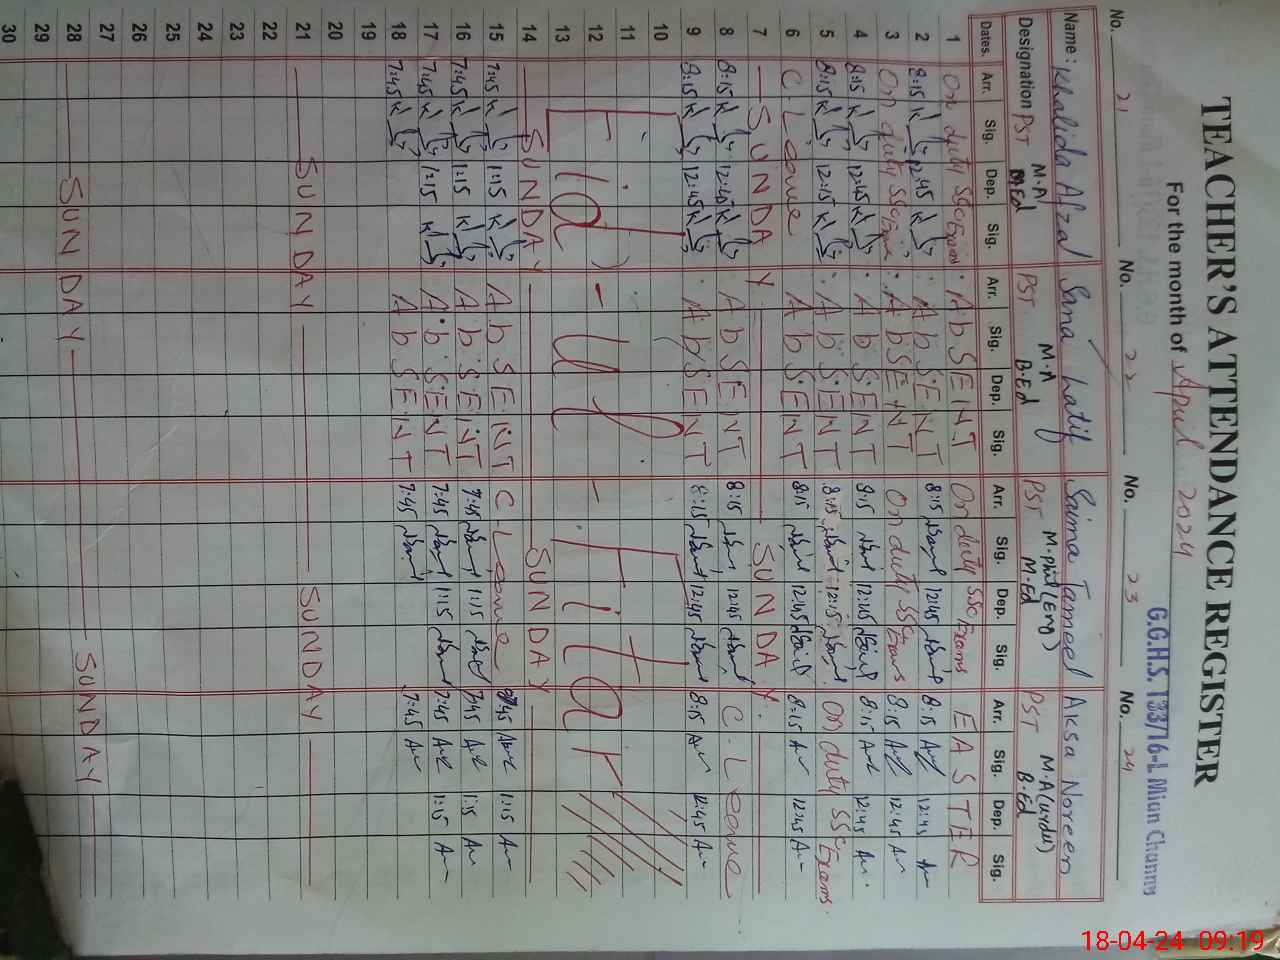 TEACHER'S ATTENDANCE REGISTER
For the month of April 2024
G.G.H.S. 133/16-L Mian Channu
No. 21 No. 22 No. 23 No. 24
Name: Khalida Afzal Sana Latif Saima Jameel Aksa Noreen
Designation PST M.A M.Ed PST M.A B.Ed PST M.phil (Eng) M.Ed PST M.A (urdu) B.Ed
Dates. Arr. Sig. Dep. Sig. Arr. Sig. Dep. Sig. Arr. Sig. Dep. Sig. Arr. Sig. Dep. Sig.
1 On duty SSC Exam AbSENT On duty SSC Exams EASTER
2 8:15 12:45 AbSENT 8:15 12:45 8:15 12:45
3 On duty SSC Exam AbSENT On duty SSC Exams 8:15 12:45
4 8:15 12:45 AbSENT 8:15 12:45 8:15 12:45
5 8:15 12:15 AbSENT 8:15 12:15 On duty SSC Exams.
6 C. Leave AbSENT 8:15 12:45 8:15 12:45
7 SUNDAY SUNDAY
8 8:15 12:45 AbSENT 8:15 12:45 C. Leave
9 8:15 12:45 AbSENT 8:15 12:45 8:15 12:45
10
11
12 Eid - ul - Fitar
13
14 SUNDAY SUNDAY
15 7:45 1:15 AbSENT C Leave 7:45 1:15
16 7:45 1:15 AbSENT 7:45 1:15 7:45 1:15
17 7:45 1:15 AbSENT 7:45 1:15 7:45 1:15
18 7:45 AbSENT 7:45 7:45
19
20
21 SUNDAY SUNDAY
22
23
24
25
26
27
28 SUNDAY SUNDAY
29
30
18-04-24 09:19